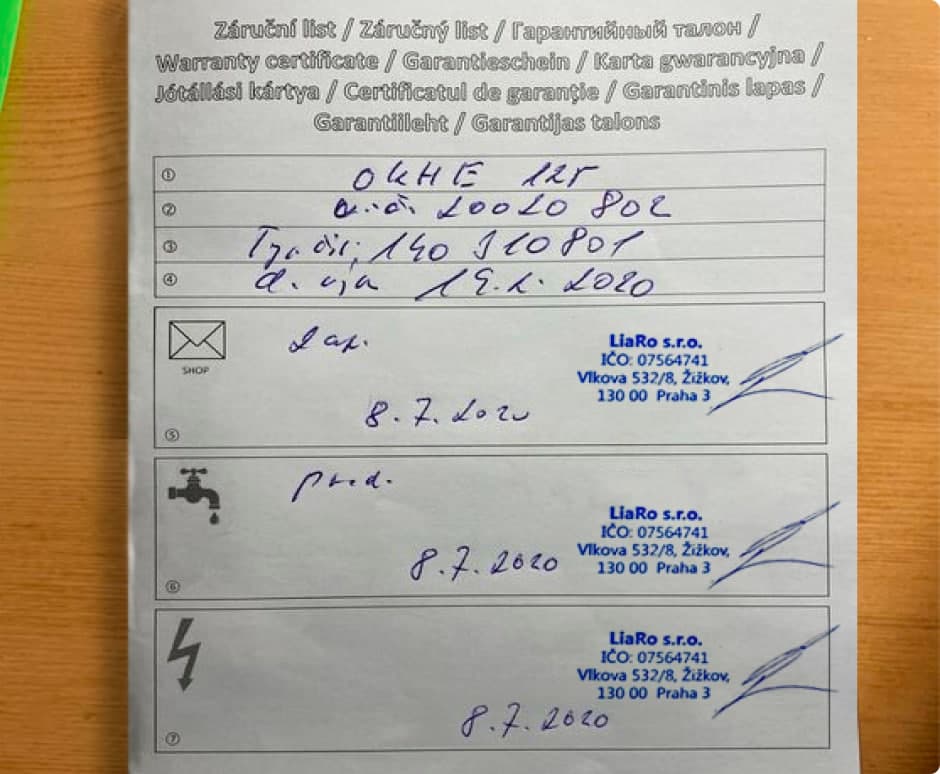 Záruční list / Záručný list / Гарантийный талон /
Warranty certificate / Garantieschein / Karta gwarancyjna /
Jótállási kártya / Certificatul de garanţie / Garantinis lapas /
Garantiileht / Garantijas talons
①
OKHE 125
②
20020 802
③
140 310801
④
2020
SHOP
LiaRo s.r.o.
IČO: 07564741
Vlkova 532/8, Žižkov,
130 00 Praha 3
8.7.2020
⑤
LiaRo s.r.o.
IČO: 07564741
Vlkova 532/8, Žižkov,
130 00 Praha 3
8.7.2020
⑥
LiaRo s.r.o.
IČO: 07564741
Vlkova 532/8, Žižkov,
130 00 Praha 3
8.7.2020
⑦